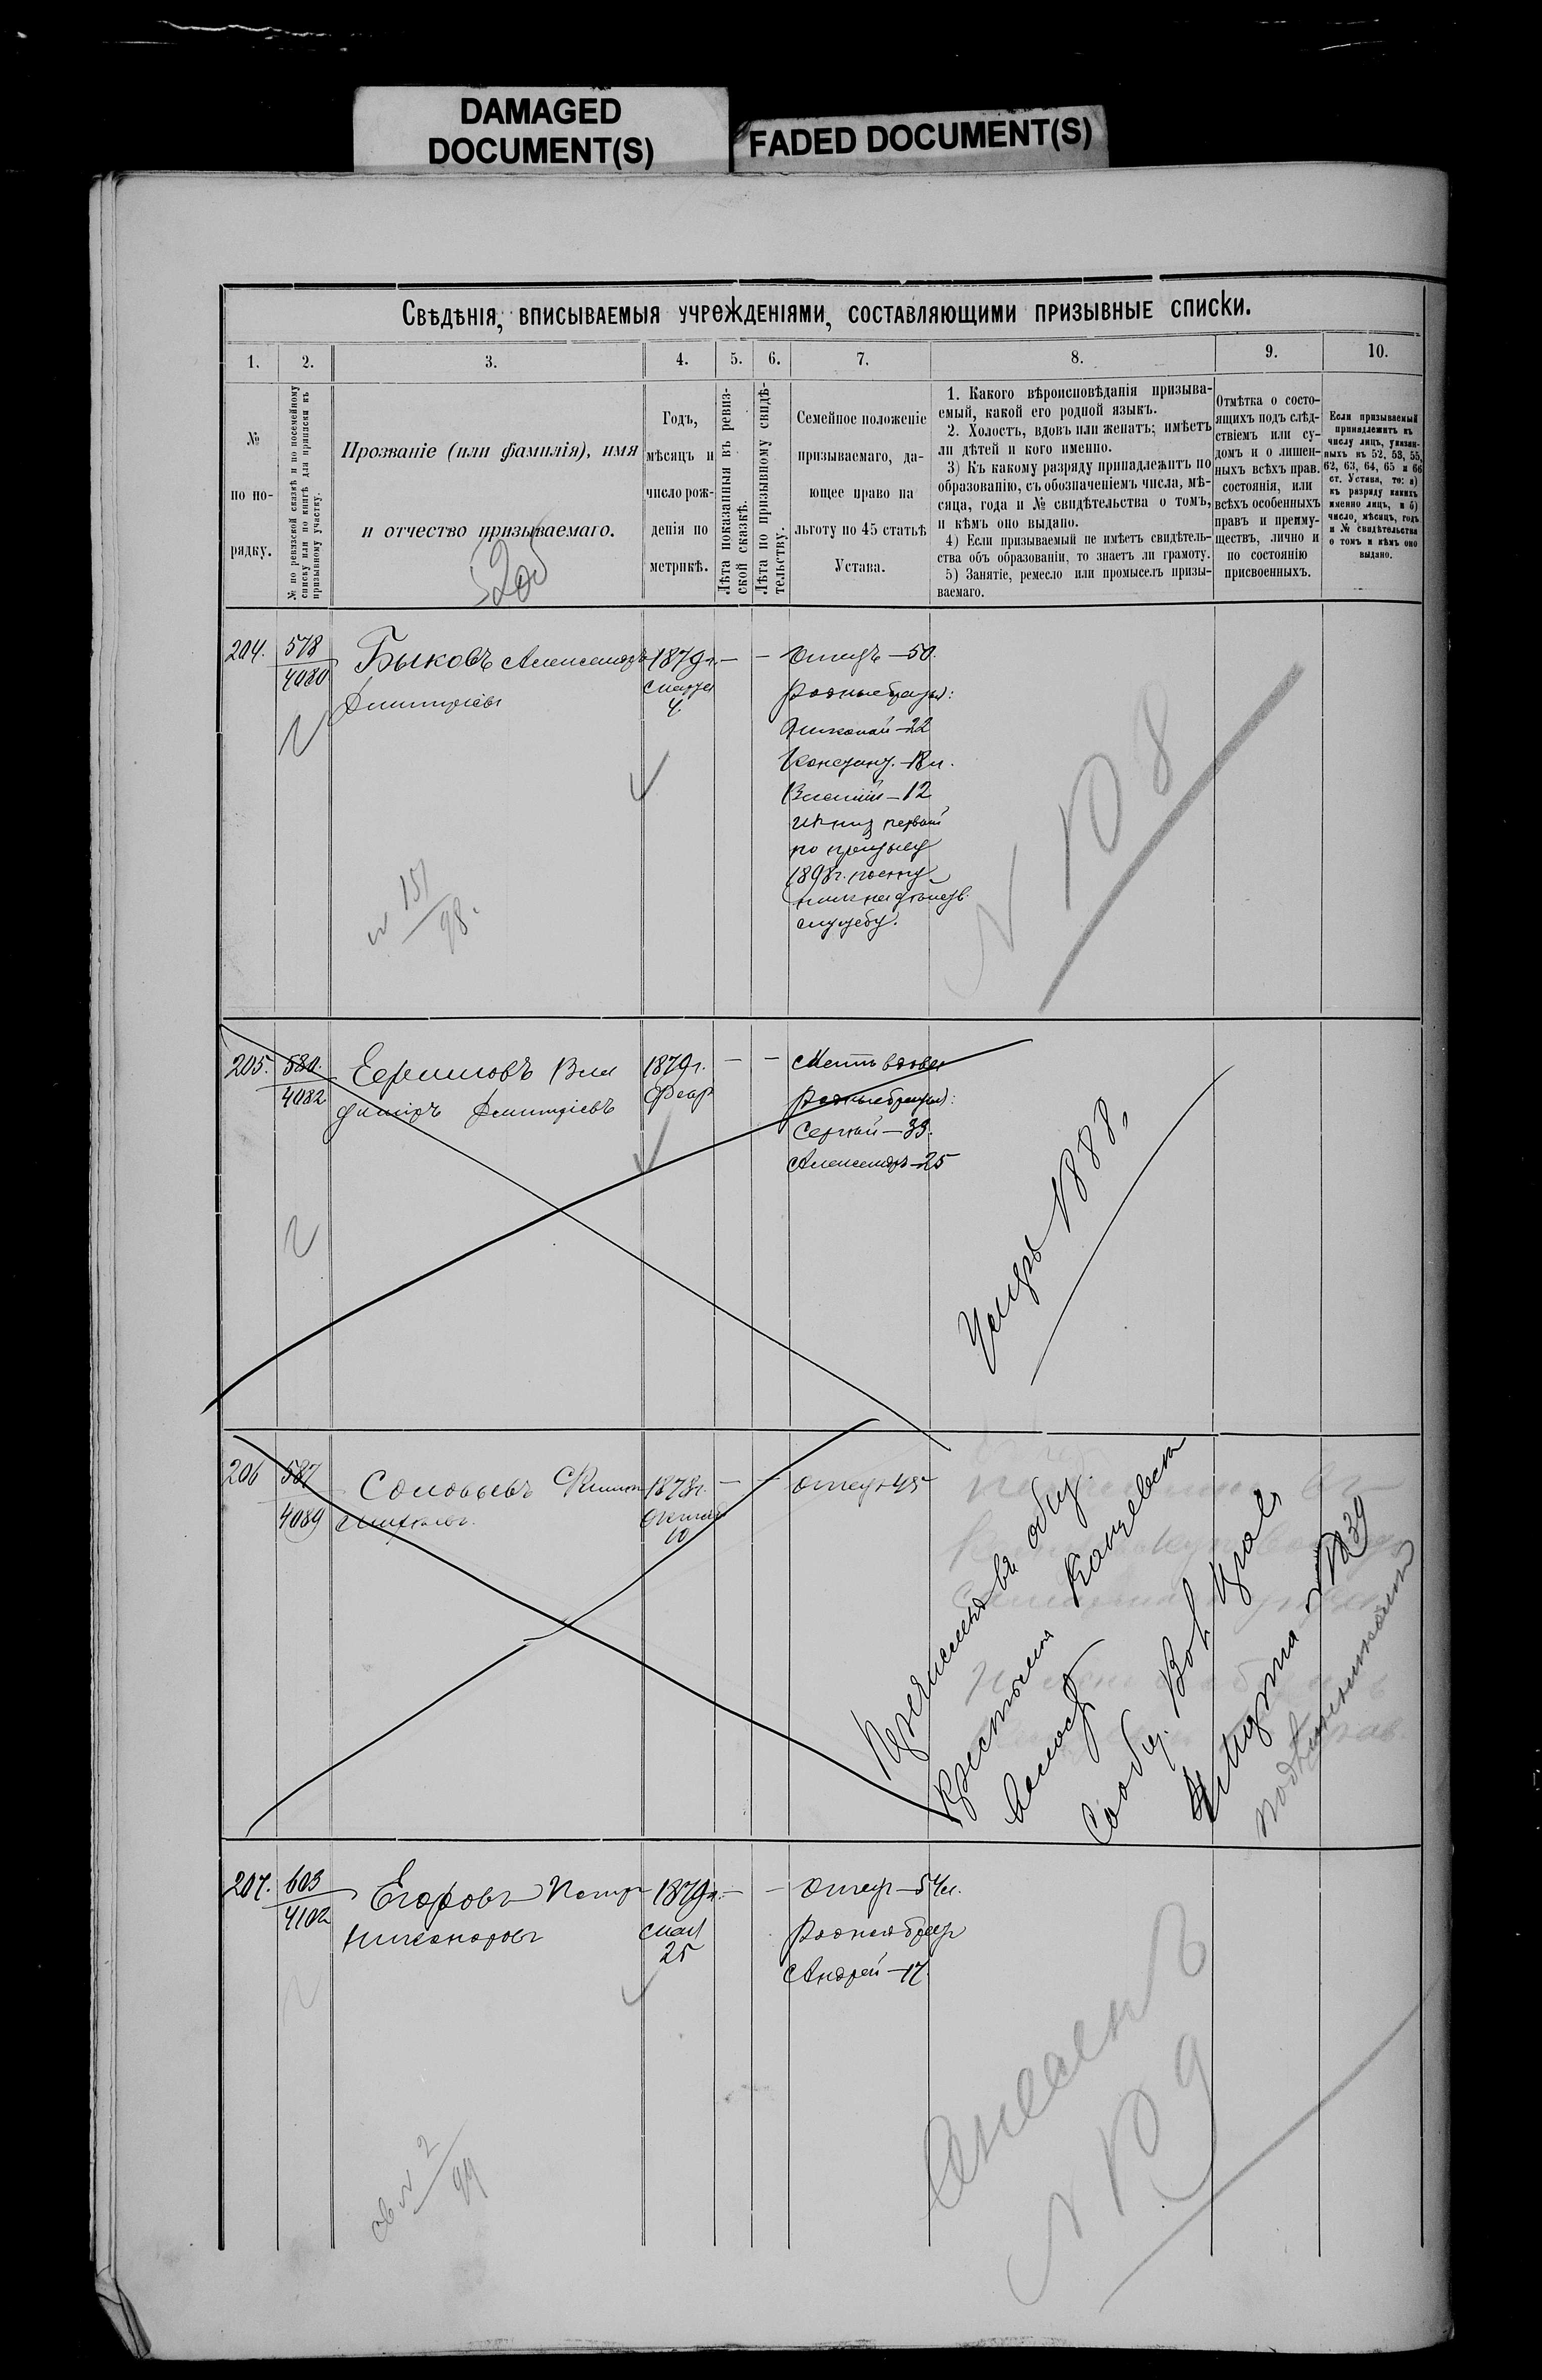 DAMAGED
DOCUMENT(S)
FADED DOCUMENT(S)
Свѣдѣнія, вписываемыя учрежденіями, составляющими призывные списки.
1. 2. 3. 4. 5. 6. 7. 8. 9. 10.
№
по по-
рядку.
№ по ревизской сказкѣ и по посемейному
списку или по книгѣ для приписки къ
призывному участку.
Прозваніе (или фамилія), имя
и отчество призываемаго.
Годъ,
мѣсяцъ и
число рож-
денія по
метрикѣ.
Лѣта показанныя въ ревиз-
ской сказкѣ.
Лѣта по призывному свидѣ-
тельству.
Семейное положеніе
призываемаго, да-
ющее право на
льготу по 45 статьѣ
Устава.
1. Какого вѣроисповѣданія призыва-
емый, какой его родной языкъ.
2. Холостъ, вдовъ или женатъ; имѣетъ
ли дѣтей и кого именно.
3) Къ какому разряду принадлежитъ по
образованію, съ обозначеніемъ числа, мѣ-
сяца, года и № свидѣтельства о томъ,
и кѣмъ оно выдано.
4) Если призываемый не имѣетъ свидѣтель-
ства объ образованіи, то знаетъ ли грамоту.
5) Занятіе, ремесло или промыселъ призы-
ваемаго.
Отмѣтка о состо-
ящихъ подъ слѣд-
ствіемъ или су-
домъ и о лишен-
ныхъ всѣхъ прав.
состоянія, или
всѣхъ особенныхъ
правъ и преиму-
ществъ, лично и
по состоянію
присвоенныхъ.
Если призываемый
принадлежитъ къ
числу лицъ, указан-
ныхъ въ 52, 53, 55,
62, 63, 64, 65 и 66
ст. Устава, то: а)
къ разряду какихъ
именно лицъ, и б)
число, мѣсяцъ, годъ
и № свидѣтельства
о томъ и кѣмъ оно
выдано.
204. 578 Быковъ Александръ 1879г. — — Отецъ — 50.
4080 Дмитріевъ Марта
4.
Родные братья:
Николай — 22
Констант. — 18 л.
Василій — 12
изъ них первый
по призыву
1898г. посту
пил на дѣйств.
службу.
№ 151
98.
205. 580. Ефимовъ Вла 1879г. — — Мать вдова
4082 диміръ Дмитріевъ Февр
Родные братья:
Сергѣй — 33.
Александръ — 25
Умеръ 1888,
206 587 Соловьевъ 1878г. — — Отецъ 45
4089 Октяб
10
Перечисленъ въ общ.
Крестьянъ
Волост
Сообщ. Вол Прав
207. 603 Егоровъ Петръ 1879г. — — Отецъ — 54 л.
4102 Никаноровъ Мая
25
Родной братъ
Андрей — 17.
2
99